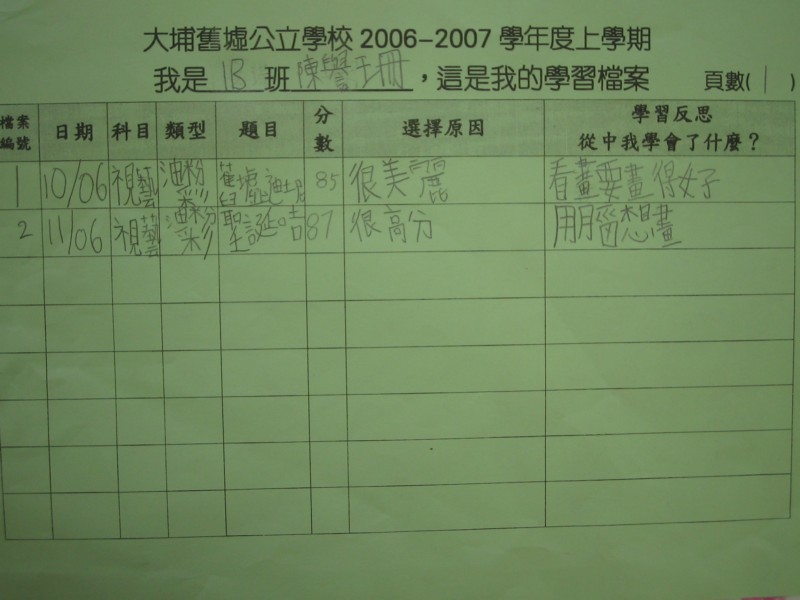 大埔舊墟公立學校 2006-2007 學年度上學期
我是 1B 班 陳譽珊，這是我的學習檔案 頁數( 1 )
檔案編號 日期 科目 類型 題目 分數 選擇原因 學習反思 從中我學會了什麼？
1 10/06 視藝 油粉彩 85 很美麗 看畫要畫得好
2 11/06 視藝 油粉彩 聖誕咭 87 很高分 用腦想畫